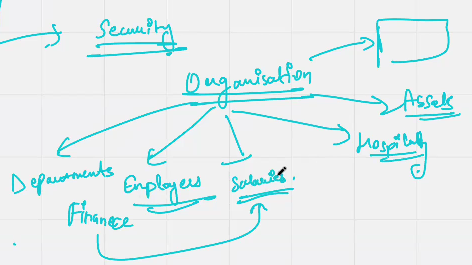 Security
Organisation
Assets
Hospitality
Departments
Employees
Salaries.
Finance